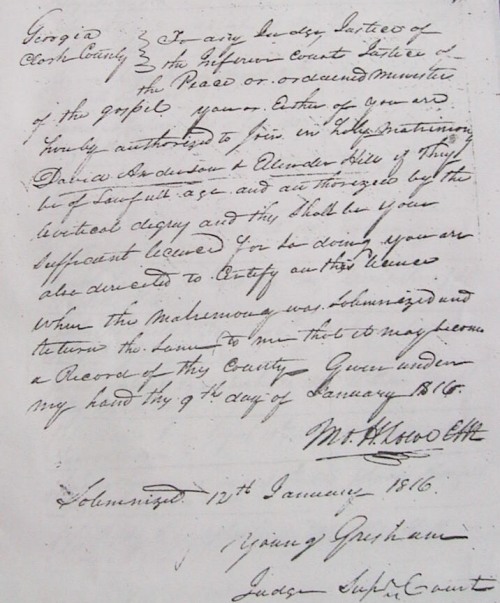 Georgia } To any Judge, Justice of
Clark County } the Inferior court Justice of
the Peace or ordaened minister
of the gospel you or Either of you are
hereby authorized to Join in holly matrimony
David Anderson & Elender Hill if they
be of Lawfull age and authorized by the
levitical degrey and this Shall be your
sufficient licence for So doing you are
also directed to Certify on this licence
when the Matremony was Solemnized and
Return the Same to me that it may become
a Record of this County Given under
my hand this 9th day of January 1816.
H. Lowe
Solemnized 12th January 1816.
Young Gresham
Judge Supr Court